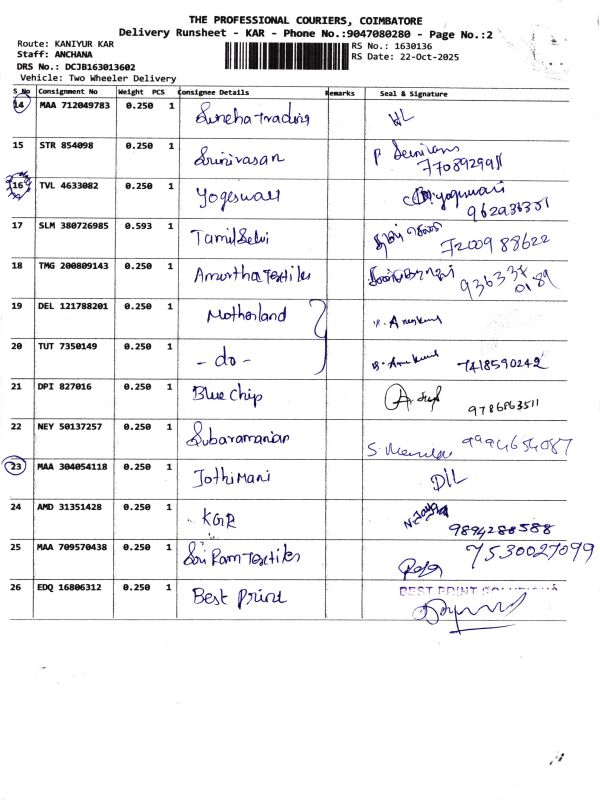 THE PROFESSIONAL COURIERS, COIMBATORE
Delivery Runsheet - KAR - Phone No.:9047080280 - Page No.:2
Route: KANIYUR KAR
Staff: ANCHANA
DRS No.: DCJB163013602
Vehicle: Two Wheeler Delivery
RS No.: 1630136
RS Date: 22-Oct-2025
S No Consignment No Weight PCS Consignee Details Remarks Seal & Signature
14 MAA 712049783 0.250 1 Sneha trading
15 STR 854098 0.250 1 Srinivasan
7708929911
16 TVL 4633082 0.250 1 Yogeswari
17 SLM 380726985 0.593 1 TamilSelvi
7200988622
18 TMG 200809143 0.250 1 Amirtha Textiles
19 DEL 121788201 0.250 1 Motherland
20 TUT 7350149 0.250 1 - do - 7418590242
21 DPI 827016 0.250 1 Blue chip
9786863511
22 NEY 50137257 0.250 1 Subaramanian 9994654087
23 MAA 304054118 0.250 1 Jothi Mani D/L
24 AMD 31351428 0.250 1 KGR
9894288588
25 MAA 709570438 0.250 1 Sri Ram Textiles 7530027099
26 EDQ 16806312 0.250 1 Best Print BEST PRINT